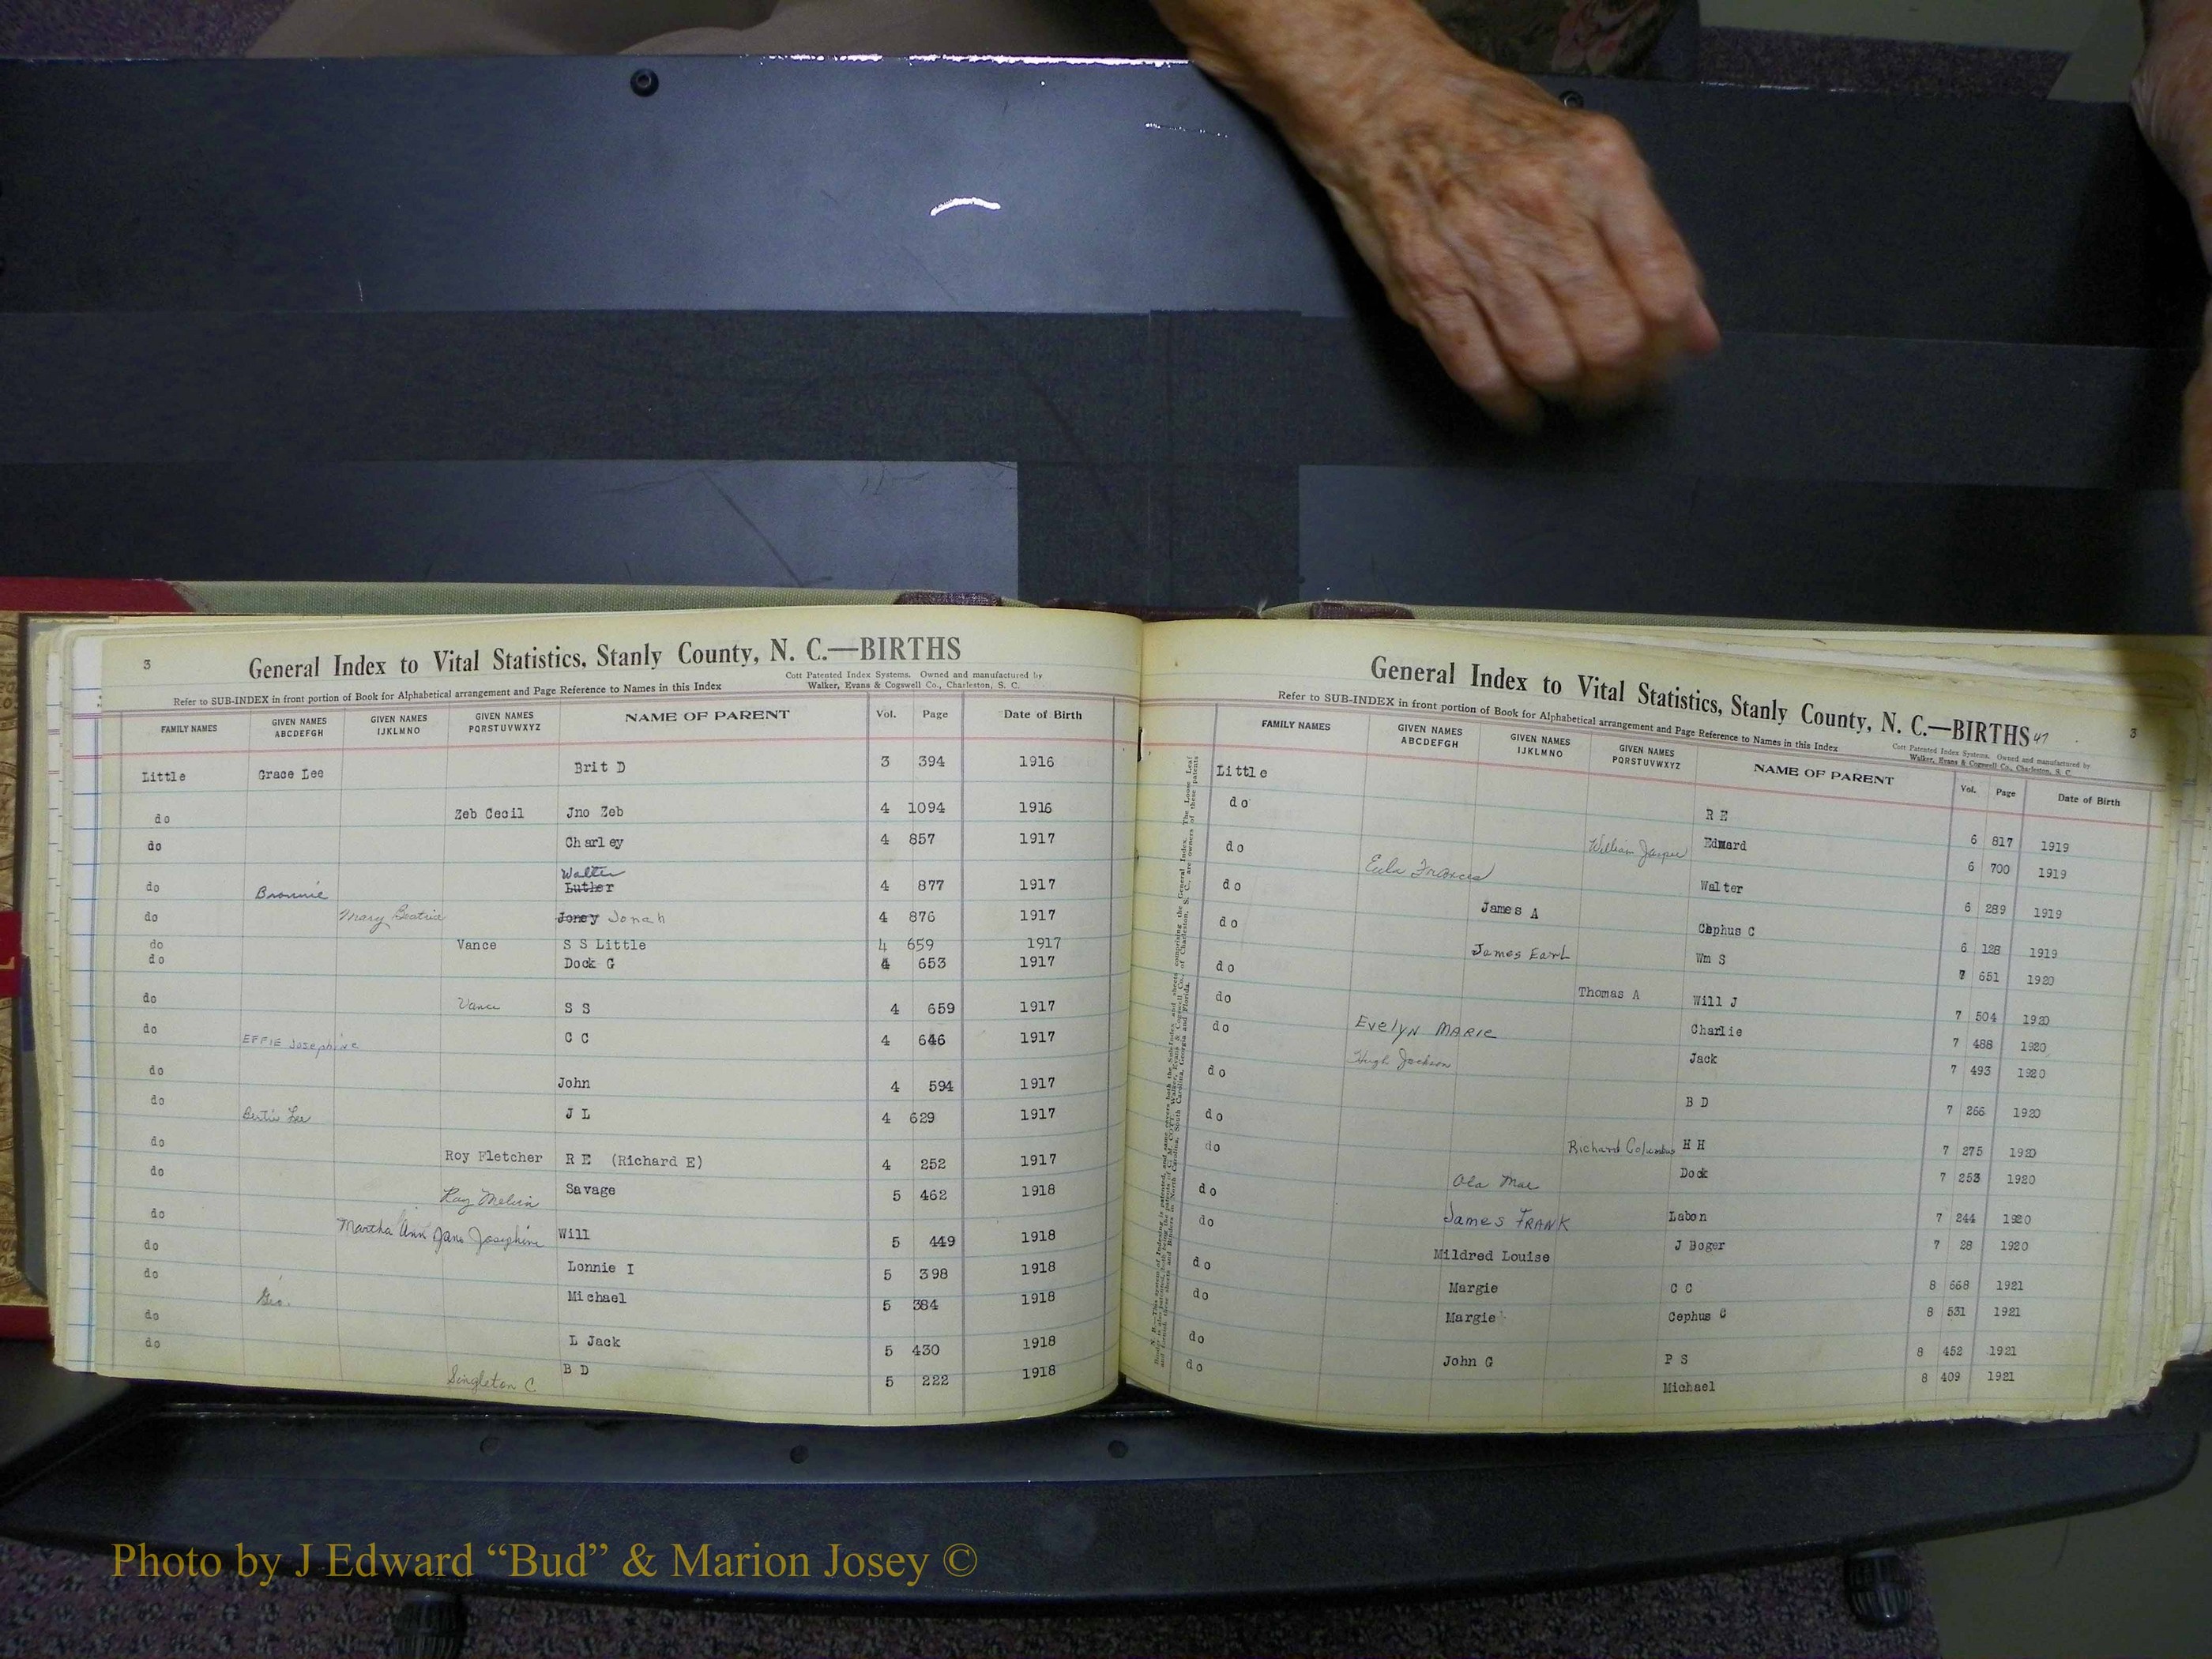 3
General Index to Vital Statistics, Stanly County, N. C.—BIRTHS
Refer to SUB-INDEX in front portion of Book for Alphabetical arrangement and Page Reference to Names in this Index
Cott Patented Index Systems. Owned and manufactured by
Walker, Evans & Cogswell Co., Charleston, S. C.
FAMILY NAMES GIVEN NAMES ABCDEFGH GIVEN NAMES IJKLMNO GIVEN NAMES PQRSTUVWXYZ NAME OF PARENT Vol. Page Date of Birth
Little Grace Lee Brit D 3 394 1916
do Zeb Cecil Jno Zeb 4 1094 1916
do Charley 4 857 1917
Walter
do Brownie Luther 4 877 1917
do Mary Beatrice Joney Jonah 4 876 1917
do Vance S S Little 4 659 1917
do Dock G 4 653 1917
do Vance S S 4 659 1917
do EFFIE Josephine C C 4 646 1917
do John 4 594 1917
do Bertie Lee J L 4 629 1917
do Roy Fletcher R E (Richard E) 4 252 1917
do Ray Melvin Savage 5 462 1918
do Martha Ann Jane Josephine Will 5 449 1918
do Lonnie I 5 398 1918
do Geo. Michael 5 384 1918
do L Jack 5 430 1918
do Singleton C B D 5 222 1918
General Index to Vital Statistics, Stanly County, N. C.—BIRTHS 47
3
Refer to SUB-INDEX in front portion of Book for Alphabetical arrangement and Page Reference to Names in this Index
Cott Patented Index Systems. Owned and manufactured by
Walker, Evans & Cogswell Co., Charleston, S. C.
FAMILY NAMES GIVEN NAMES ABCDEFGH GIVEN NAMES IJKLMNO GIVEN NAMES PQRSTUVWXYZ NAME OF PARENT Vol. Page Date of Birth
Little R E 6 817 1919
do William Jasper Edward 6 700 1919
do Eula Frances Walter 6 289 1919
do James A Cephus C 6 128 1919
do James Earl Wm S 7 651 1920
do Thomas A Will J 7 504 1920
do Evelyn MARIE Charlie 7 488 1920
do Hugh Jackson Jack 7 493 1920
do B D 7 266 1920
do Richard Columbus H H 7 275 1920
do Ola Mae Dock 7 253 1920
do James FRANK Labon 7 244 1920
do Mildred Louise J Boger 7 28 1920
do Margie C C 8 668 1921
do Margie Cephus C 8 531 1921
do John G P S 8 452 1921
do Michael 8 409 1921
Photo by J Edward “Bud” & Marion Josey ©